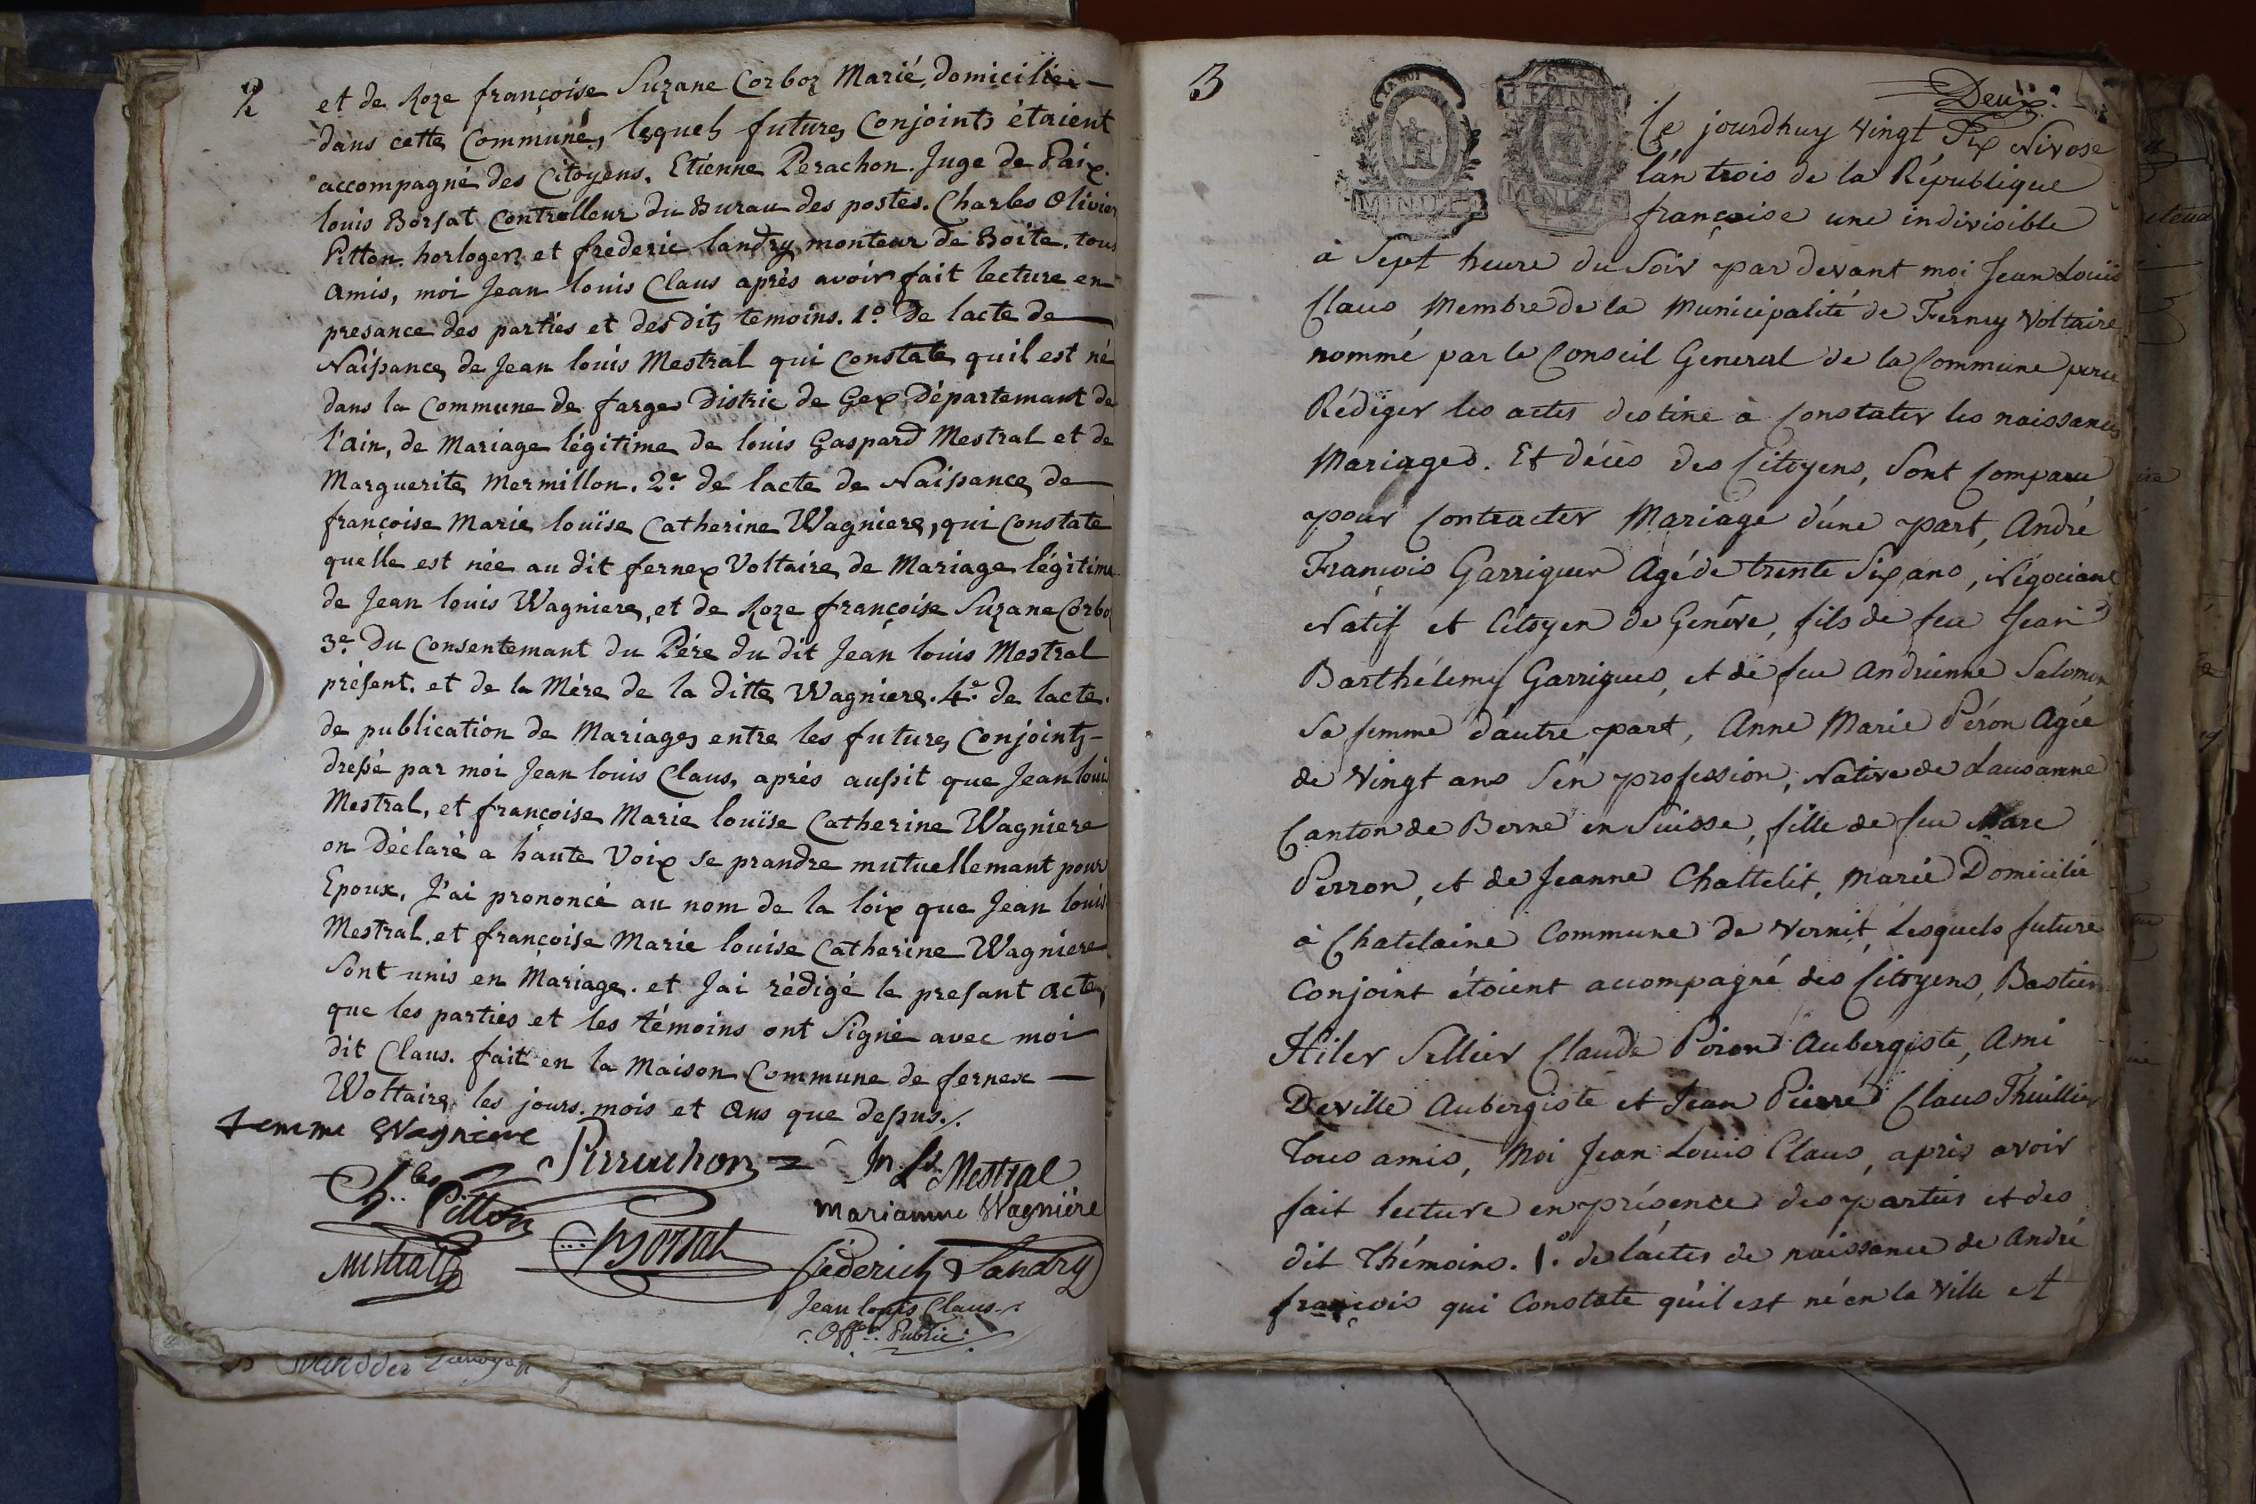 2
et de Roze françoise Suzane Corboz Marié, domicilié
dans cette Commune, lesquels futures Conjoints étaient
accompagné des Citoyens, Etienne Perachon Juge de Paix.
louis Borsat Controlleur du Burau des postes. Charles Olivier
Pitton. horloger, et frederic landry monteur de Boite. tous
amis, moi Jean louis Claus après avoir fait lecture en
presance des parties et desdits temoins. 1.º De lacte de
Naissance de Jean louis Mestral qui Constate quil est né
dans la Commune de farges Distric de Gex Départemant de
l'ain, de Mariage légitime de louis Gaspard Mestral et de
Marguerite Mermillon. 2.e de lacte de Naissance de
françoise Marie louïse Catherine Wagniere, qui Constate
quelle est née au dit fernex Voltaire de Mariage légitime
de Jean louis Wagniere, et de Roze françoise Suzane Corbo
3.e Du Consentemant du Pére du dit Jean louis Mestral
présent. et de la Mére de la ditte Wagniere. 4.e de lacte.
de publication de Mariages entre les futures Conjoints
dressé par moi Jean louis Claus, aprés aussit que Jean loui
Mestral, et françoise Marie louïse Catherine Wagniere
on Déclaré a haute Voix se prandre mutuellemant pour
Epoux, J'ai prononcé au nom de la loix que Jean louis
Mestral. et françoise Marie louise Catherine Wagniere
Sont unis en Mariage. et Jai rédigé le presant acte,
que les parties et les témoins ont Signé avec moi
dit Claus. fait en la Maison Commune de fernex
Woltaire les jours. mois et Ans que dessus./.
femme Wagniere
Perrachon Jn. Ls. Mestral
Ch..les Pitton
Marianne Wagniére
Mestral Borsat
féderich Landry
Jean louis Claus
Off.er Public
3
Deux.
Ce jourdhuy Vingt Six Nivose
l'an trois de la République
françoise une indivisible
à Sept heure du Soir par devant moi Jean Louis
Claus Membre de la Municipalité de Ferney Voltaire
nommé par le Conseil General de la Commune pour
Rédiger les actes destiné à Constater les naissances
Mariages. Et décès des Citoyens, Sont Comparu
pour Contracter Mariage d'une part, André
François Garrigues Agé de trente Six ans, Négociant
Natif et Citoyen de Genève, fils de feu Jean
Barthélemy Garrigues, et de feu Andrienne Salomon
Sa femme d'autre part, Anne Marie Péron Agée
de Vingt ans S'en profession, Native de Lausanne
Canton de Berne en Suisse, fille de feu Marc
Perron, et de Jeanne Chattelit, Marié Domicilié
à Chatelaine Commune de Vernit, Lesquels future
Conjoint étoient accompagné des Citoyens, Bastien
Hiler Sellier Claude Piron Aubergiste, Ami
Deville Aubergiste et Jean Pierre Claus Thuillier
Tous amis, Moi Jean Louis Claus, aprés avoir
fait lecture en présence des parties et des
dit Thémoins. 1.º de l'actes de naissance de André
françois qui Constate qu'il est né en la Ville et